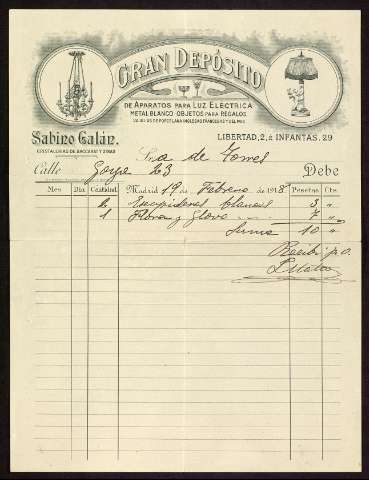 GRAN DEPÓSITO
DE APARATOS PARA LUZ ELÉCTRICA
METAL BLANCO-OBJETOS PARA REGALOS
Sabino Galán.
CRISTALERIAS DE BACCARAT Y OTRAS
LIBERTAD, 2, é INFANTAS, 29
Sra de Torres Debe
Calle Goya 23
Mes Día Cantidad. Madrid 19 de Febrero de 1918 Pesetas Cts.
2 Escupideras blancas 3 "
1 y Globo 7 "
Suma 10 "
Recibí p.o.